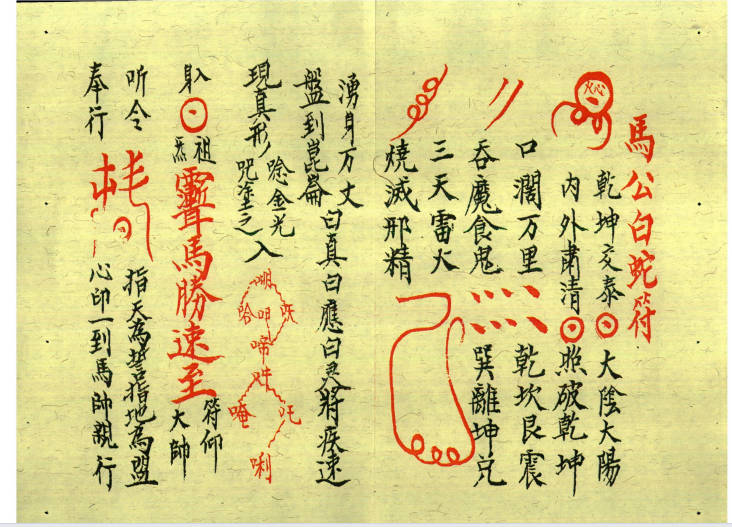 馬公白蛇符
乾坤交泰 大陰大陽
内外肅清 照破乾坤
口濶万里 乾坎艮震
吞魔食鬼 巽離坤兌
三天雷火
燒滅邪精
湧身万丈
盤到崑崙 白真白應白灵将疾速
現真形 唸金光咒塗之 入
哈 吽
啼
唵 吒
唎
躲 祖炁 馬勝速至 符仰大帥
听令 指天為誓指地為盟
奉行 心印一到馬帥親行